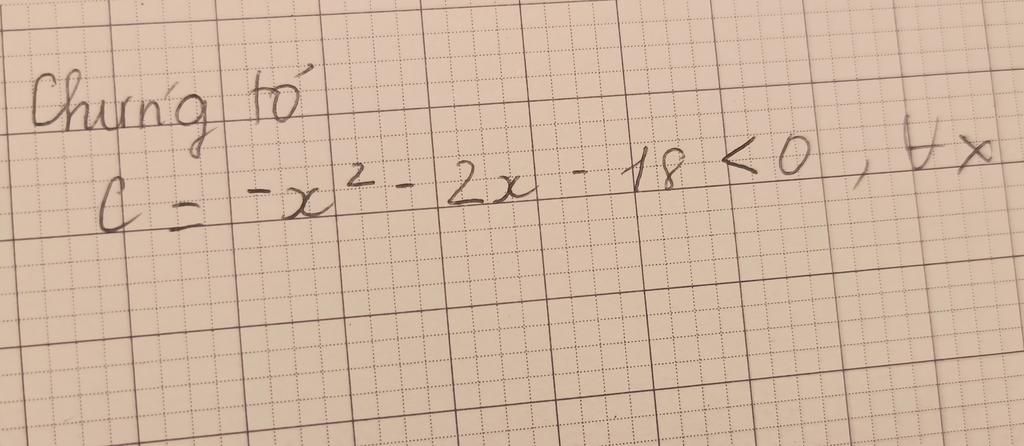 Chứng tỏ
C = -x² - 2x - 18 < 0, ∀x